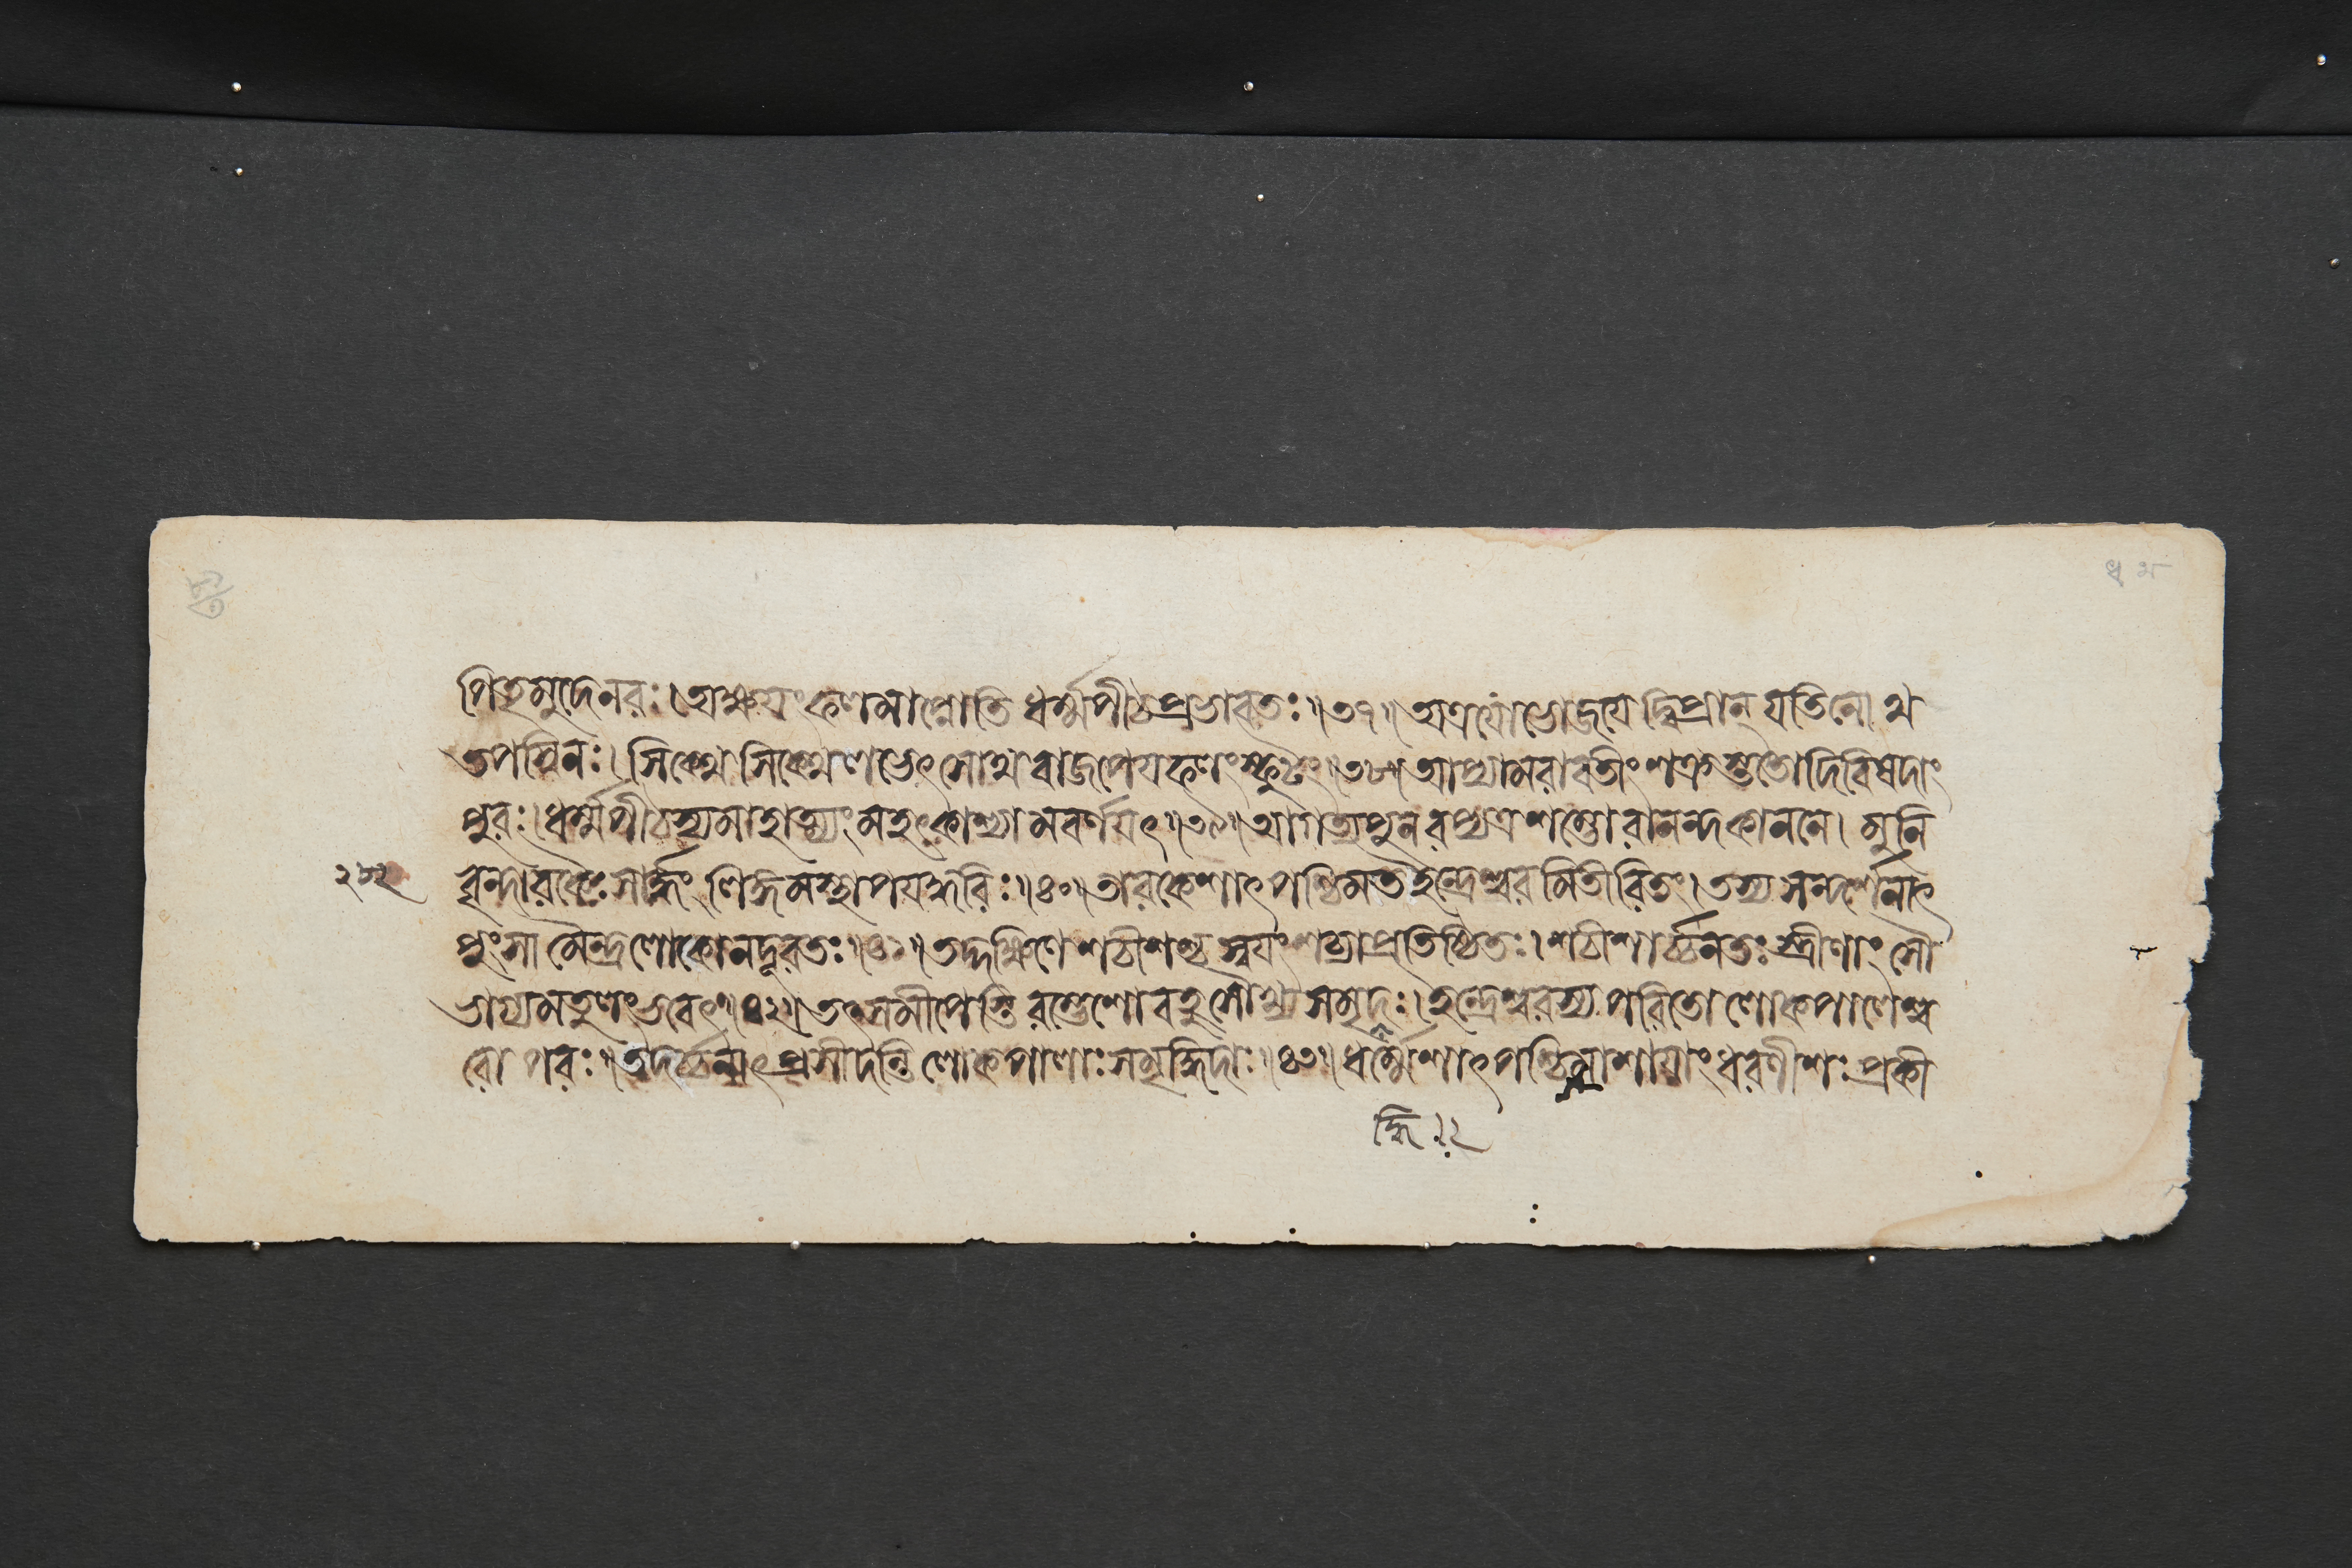 পিতৃমুদেনরঃ। অক্ষয়ং ফলমাপ্নোতি ধর্ম্মপীঠপ্রভাবতঃ॥৩৭॥ অত্রযোভোজয়েদ্বিপ্রান্ যতিনোথ
তপস্বিনঃ। সিক্থেসিক্থেলভেৎ সোথ বাজপেয়ফলংস্ফুটং॥৩৮॥ আপ্যামরাবতীং শক্রস্ততোদিবিষদাং
পুরঃ। ধর্ম্মপীঠস্যমাহাত্ম্যং মহৎকাশ্যামবর্ণয়ৎ॥৩৯॥ আগত্যপুনরপ্যত্র শম্ভোরানন্দকাননে। মুনি
২৮২ বৃন্দারকৈঃসার্দ্ধং লিঙ্গমস্থাপয়দ্ধরিঃ॥৪০॥ তারকেশাৎপশ্চিমতইন্দ্রেশ্বরমিতীরিতং। তস্যসন্দর্শনাৎ
পুংসামৈন্দ্রলোকোনদূরতঃ॥৪১॥ তদ্দক্ষিণেশচীশশ্চ স্বয়ংশচ্যাপ্রতিষ্ঠিতঃ। শচীশার্চ্চনতঃস্ত্রীণাং সৌ
ভাগ্যমতুলংভবেৎ॥৪২॥ তৎসমীপেস্তিরম্ভেশোবহুসৌখ্যসমৃদঃ। ইন্দ্রেশ্বরস্যপরিতোলোকপালেশ্ব
রোপরঃ॥ তদর্চ্চনাৎপ্রসীদন্তি লোকপালাঃসমৃদ্ধিদাঃ॥৪৩॥ ধর্ম্মেশাৎপশ্চিমাশায়াংধরণীশঃ প্রকী
দ্ধি।২